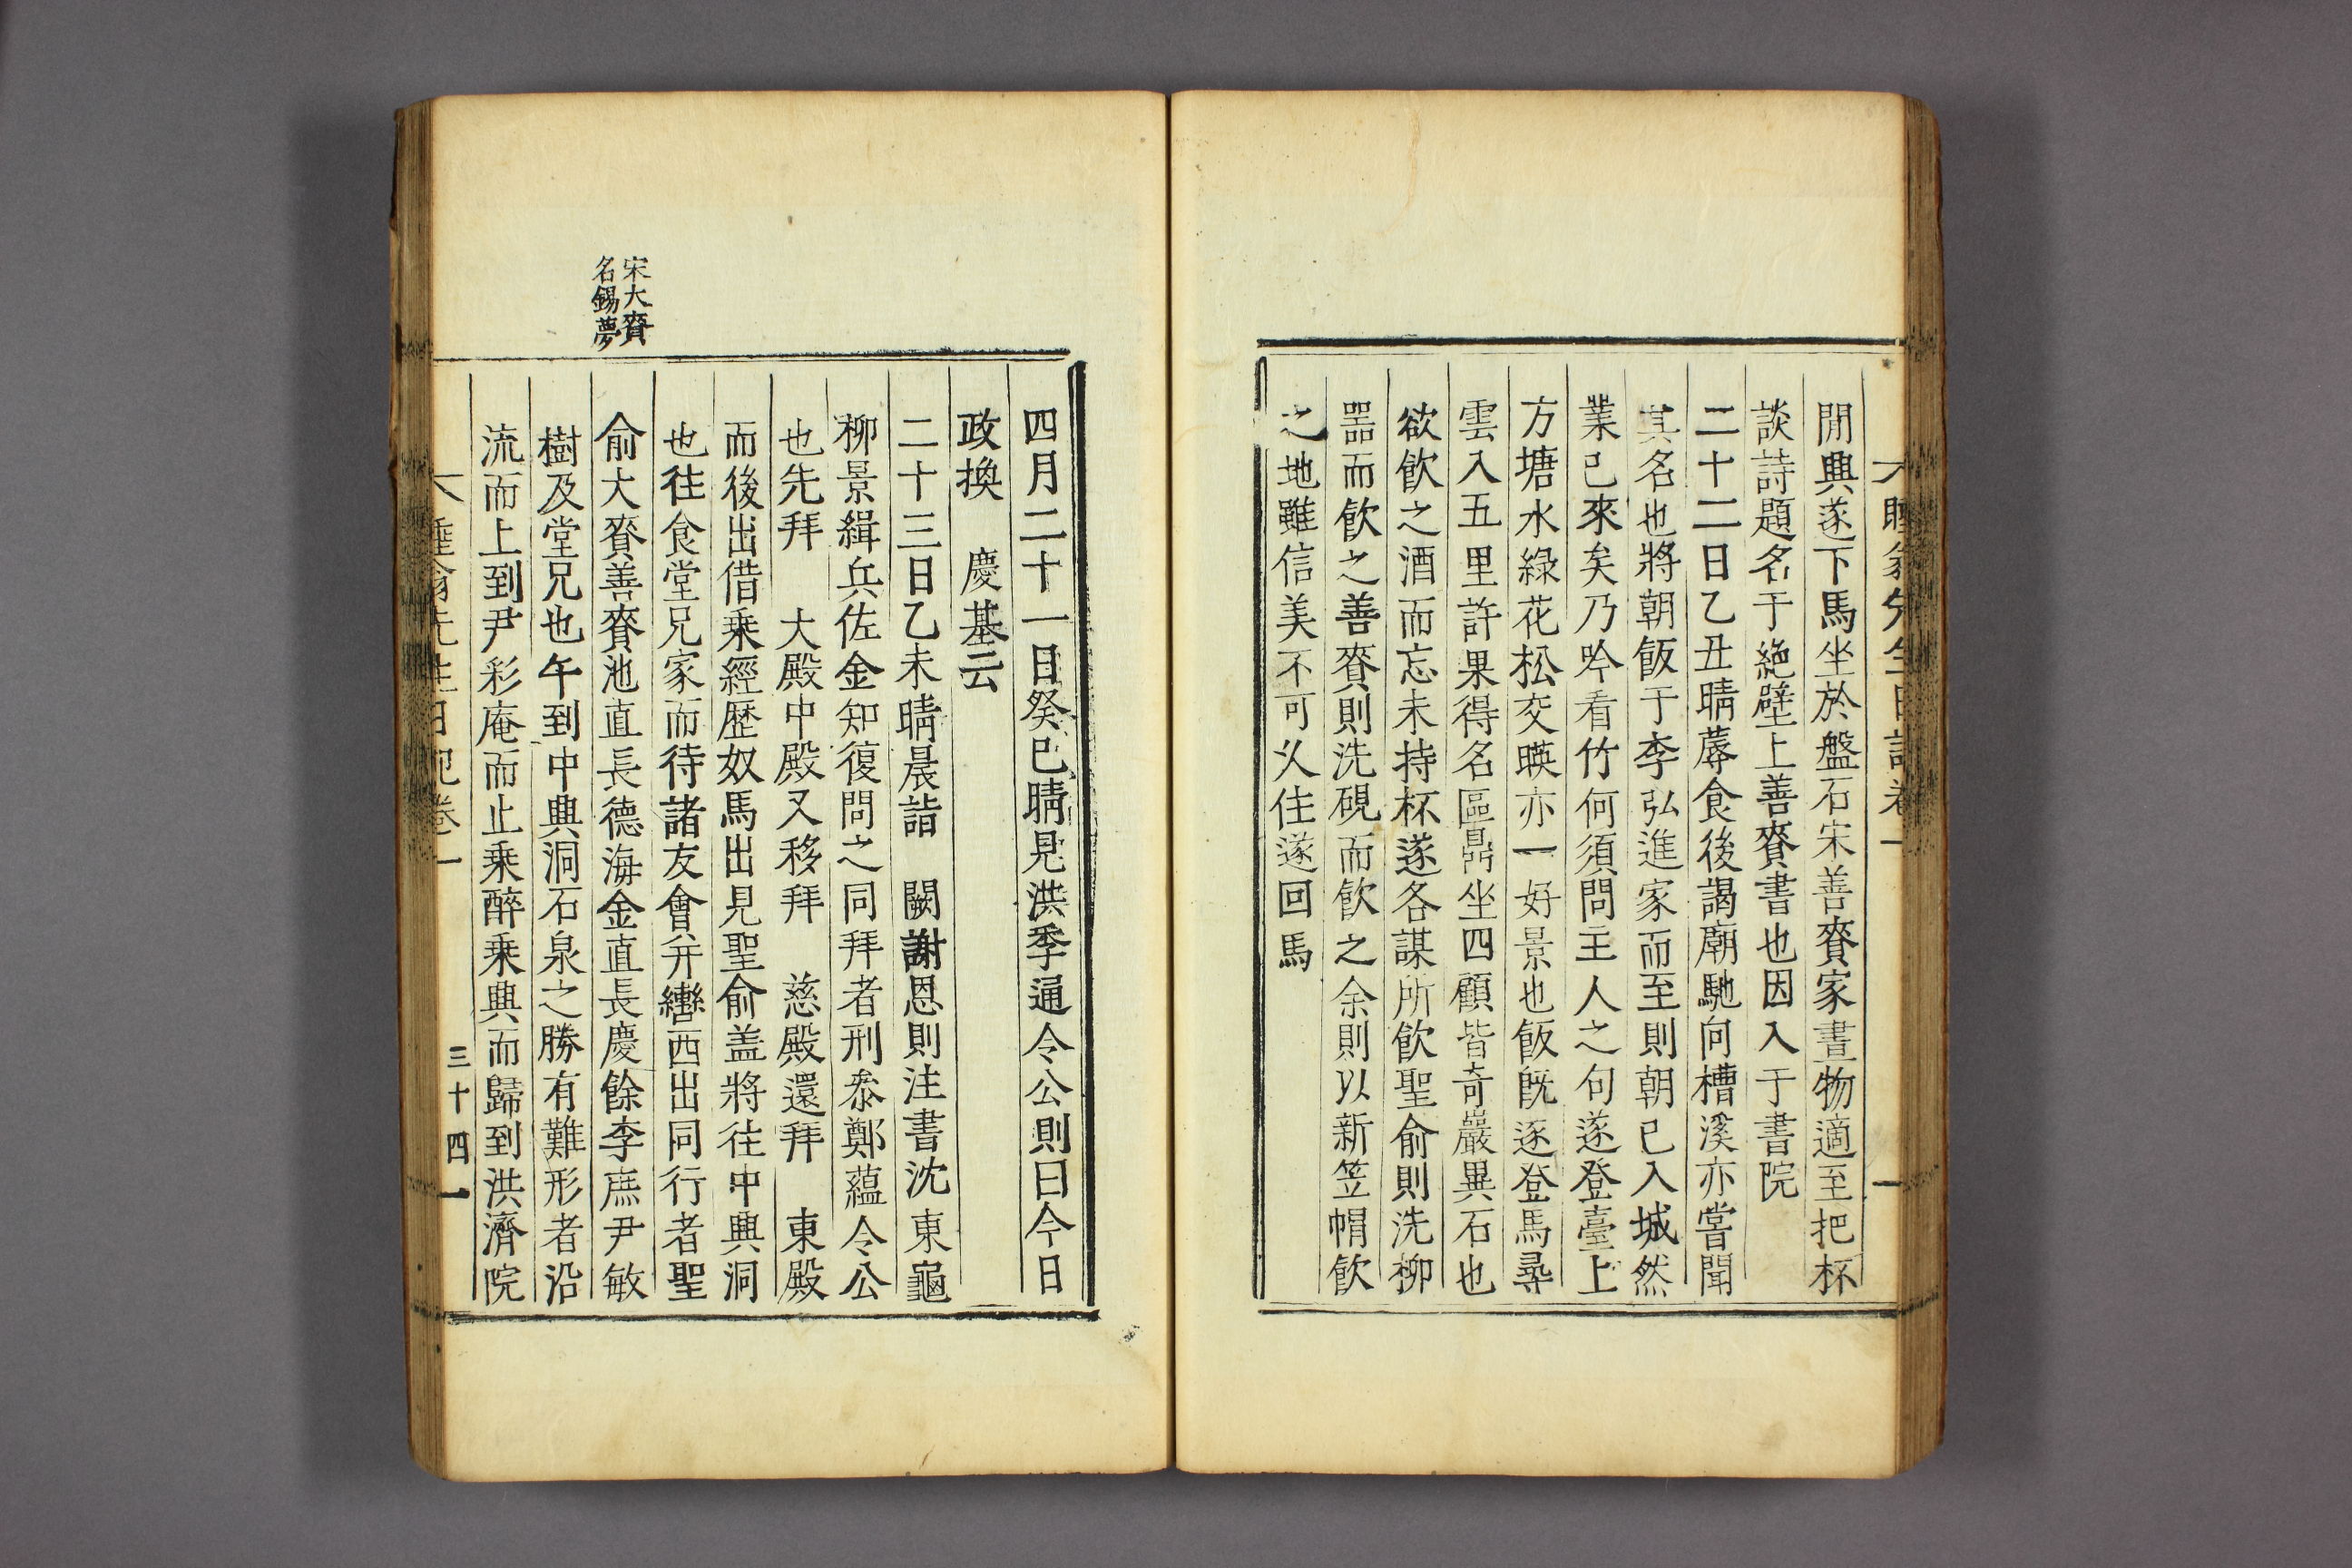 閒興遂下馬坐於盤石宋善賚家書物適至把杯
談詩題名于絶壁上善賚書也因入于書院
二十二日乙丑晴蓐食後謁廟馳向槽溪亦嘗聞
其名也將朝飯于李弘進家而至則朝已入城然
業已來矣乃吟看竹何須問主人之句遂登臺上
方塘水綠花松交暎亦一好景也飯既逐登馬尋
雲入五里許果得名區鼎坐四顧皆奇巖異石也
欲飮之酒而忘未持杯遂各謀所飮聖俞則洗柳
器而飮之善賚則洗硯而飮之余則以新笠帽飮
之地雖信美不可久住遂回馬
四月二十一日癸巳晴見洪季通令公則曰今日
政換 慶基云
二十三日乙未晴晨詣 闕謝恩則注書沈東龜
柳景緝兵佐金知復問之同拜者刑叅鄭蘊令公
也先拜 大殿中殿又移拜 慈殿還拜 東殿
而後出借乗經歷奴馬出見聖俞盖將往中興洞
也往食堂兄家而待諸友會并轡西出同行者聖
俞大賚善賚池直長德海金直長慶餘李廡尹敏
樹及堂兄也午到中興洞石泉之勝有難形者沿
流而上到尹彩庵而止乗醉乗興而歸到洪濟院
宋大賚
名錫夢
睡翁先生日記卷一
三十四